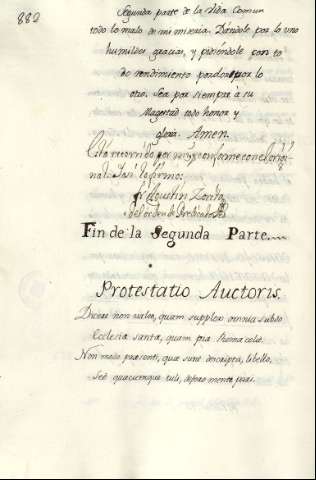 882
Segunda parte de la Vida Comun
todo lo malo de mi miseria. Dandole por lo uno
humildes gracias, y pidiendole con to
do rendimiento perdon por lo
otro. Sea por siempre a su
Magestad todo honor y
gloria. Amen.
Esta recorrido por mi, y conforme con el origi
nal. Assi lo firmo:
fr. Agustin Zorita
del orden de Predicadores
Fin de la Segunda Parte.
Protestatio Auctoris.
Dicere non valeo, quam supplex omnia subdo
Ecclesia santa, quam pia Roma colit.
Non modo praesenti, quae sunt descripta, libello,
Sed quaecunque tuli, defero mente pari.